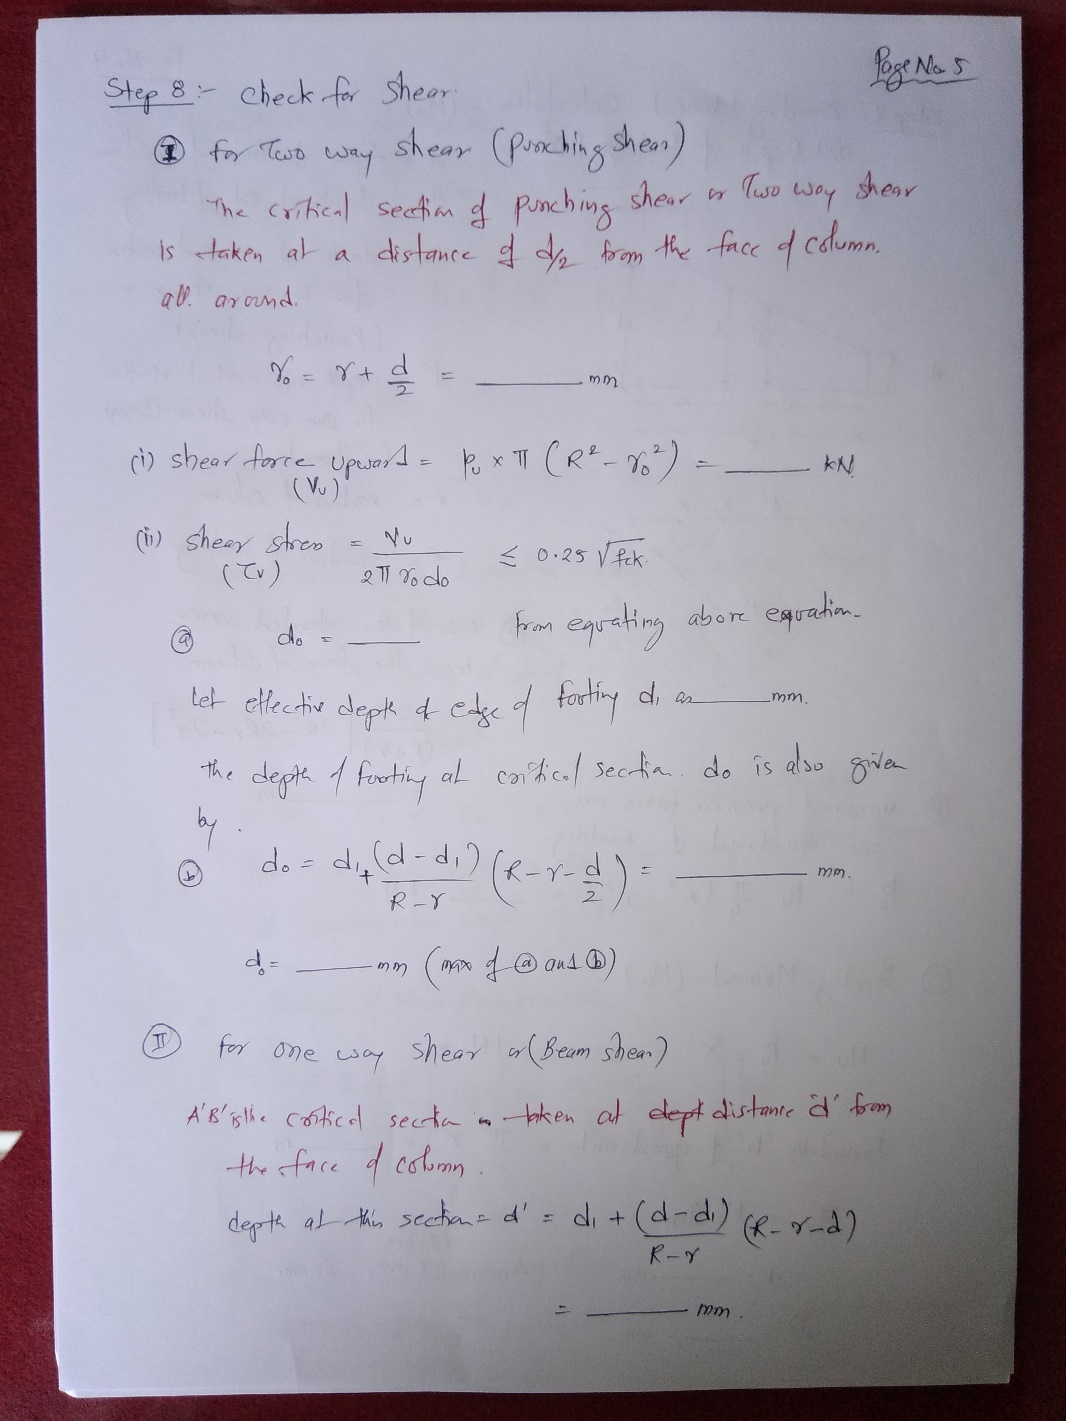 Page No 5
Step 8 :- check for Shear.
I for Two way shear (punching shear)
The critical section of punching shear or Two way shear
is taken at a distance of d/2 from the face of column.
all around.
r₀ = r + d/2 = ______ mm
(i) shear force upward = pᵤ × π (R² - r₀²) = ______ kN.
(Vu)
(ii) shear stress = Vu / 2π r₀ d₀ ≤ 0.25 √fck.
(τv)
ⓐ d₀ = ______ from equating above equation.
Let effective depth of edge of footing d₁ as ______ mm.
the depth of footing at critical section. d₀ is also given
by.
ⓑ d₀ = d₁ + (d - d₁) / R - r (R - r - d/2) = ______ mm.
d₀ = ______ mm (max of ⓐ and ⓑ)
II for one way shear or (Beam shear)
A'B' is the critical section is taken at dept distance 'd' from
the face of column.
depth at this section = d' = d₁ + (d - d₁) / R - r (R - r - d)
= ______ mm.